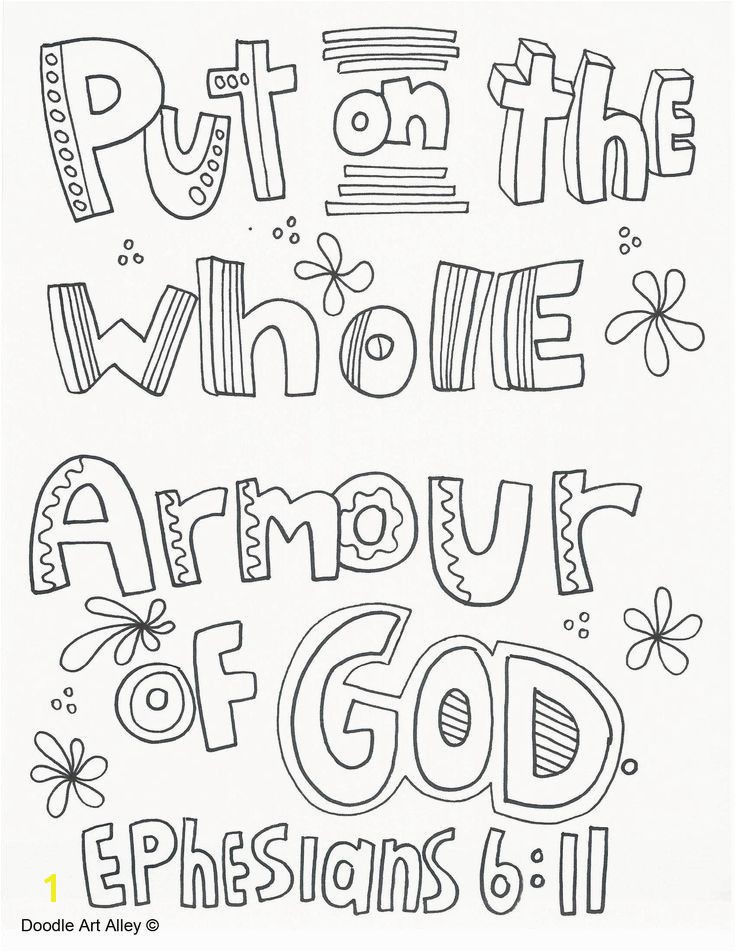 Put on the
whole
Armour
of GOD.
Ephesians 6:11
1
Doodle Art Alley ©